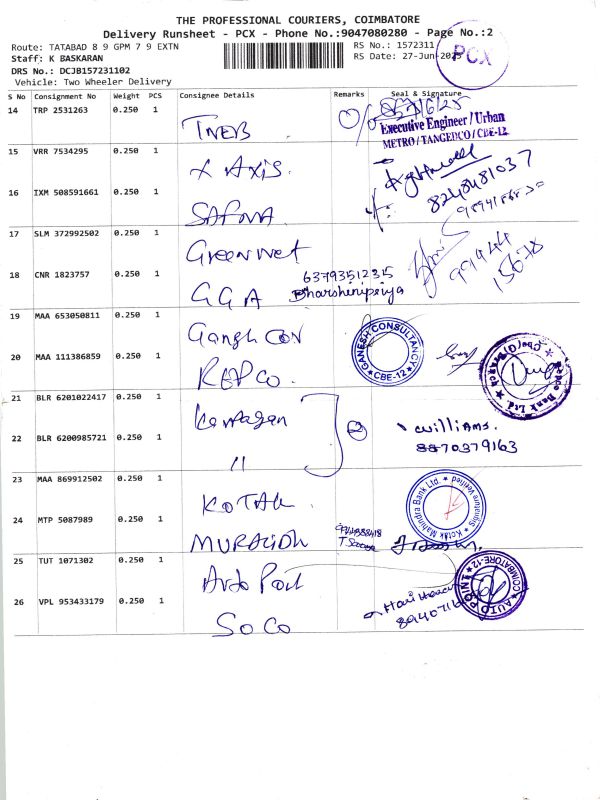 THE PROFESSIONAL COURIERS, COIMBATORE
Delivery Runsheet - PCX - Phone No.:9047080280 - Page No.:2
Route: TATABAD 8 9 GPM 7 9 EXTN
RS No.: 1572311
Staff: K BASKARAN
RS Date: 27-Jun-2025
PCX
DRS No.: DCJB157231102
Vehicle: Two Wheeler Delivery
S No Consignment No Weight PCS Consignee Details Remarks Seal & Signature
14 TRP 2531263 0.250 1 TNEB
Executive Engineer / Urban
METRO / TANGEDCO / CBE-12
15 VRR 7534295 0.250 1 X AXIS.
8248481037
16 IXM 508591661 0.250 1 SAFNA
17 SLM 372992502 0.250 1 Greennet
99444
15678
18 CNR 1823757 0.250 1 GGA
63793512315
Bharshinipriya
19 MAA 653050811 0.250 1 Gangh CON
GANESH CONSULTANCY
* CBE-12 *
20 MAA 111386859 0.250 1 REPCO.
Repco Bank Ltd. * Cbe(O) Branch *
21 BLR 6201022417 0.250 1
2
williams.
8870379163
22 BLR 6200985721 0.250 1 "
23 MAA 869912502 0.250 1 KOTAK
Kotak Mahindra Bank Ltd. * Signature Verified *
24 MTP 5087989 0.250 1 MURALIDH
25 TUT 1071302 0.250 1 Auto Poil
AUTO POINT * COIMBATORE-12 *
26 VPL 953433179 0.250 1 SOCO